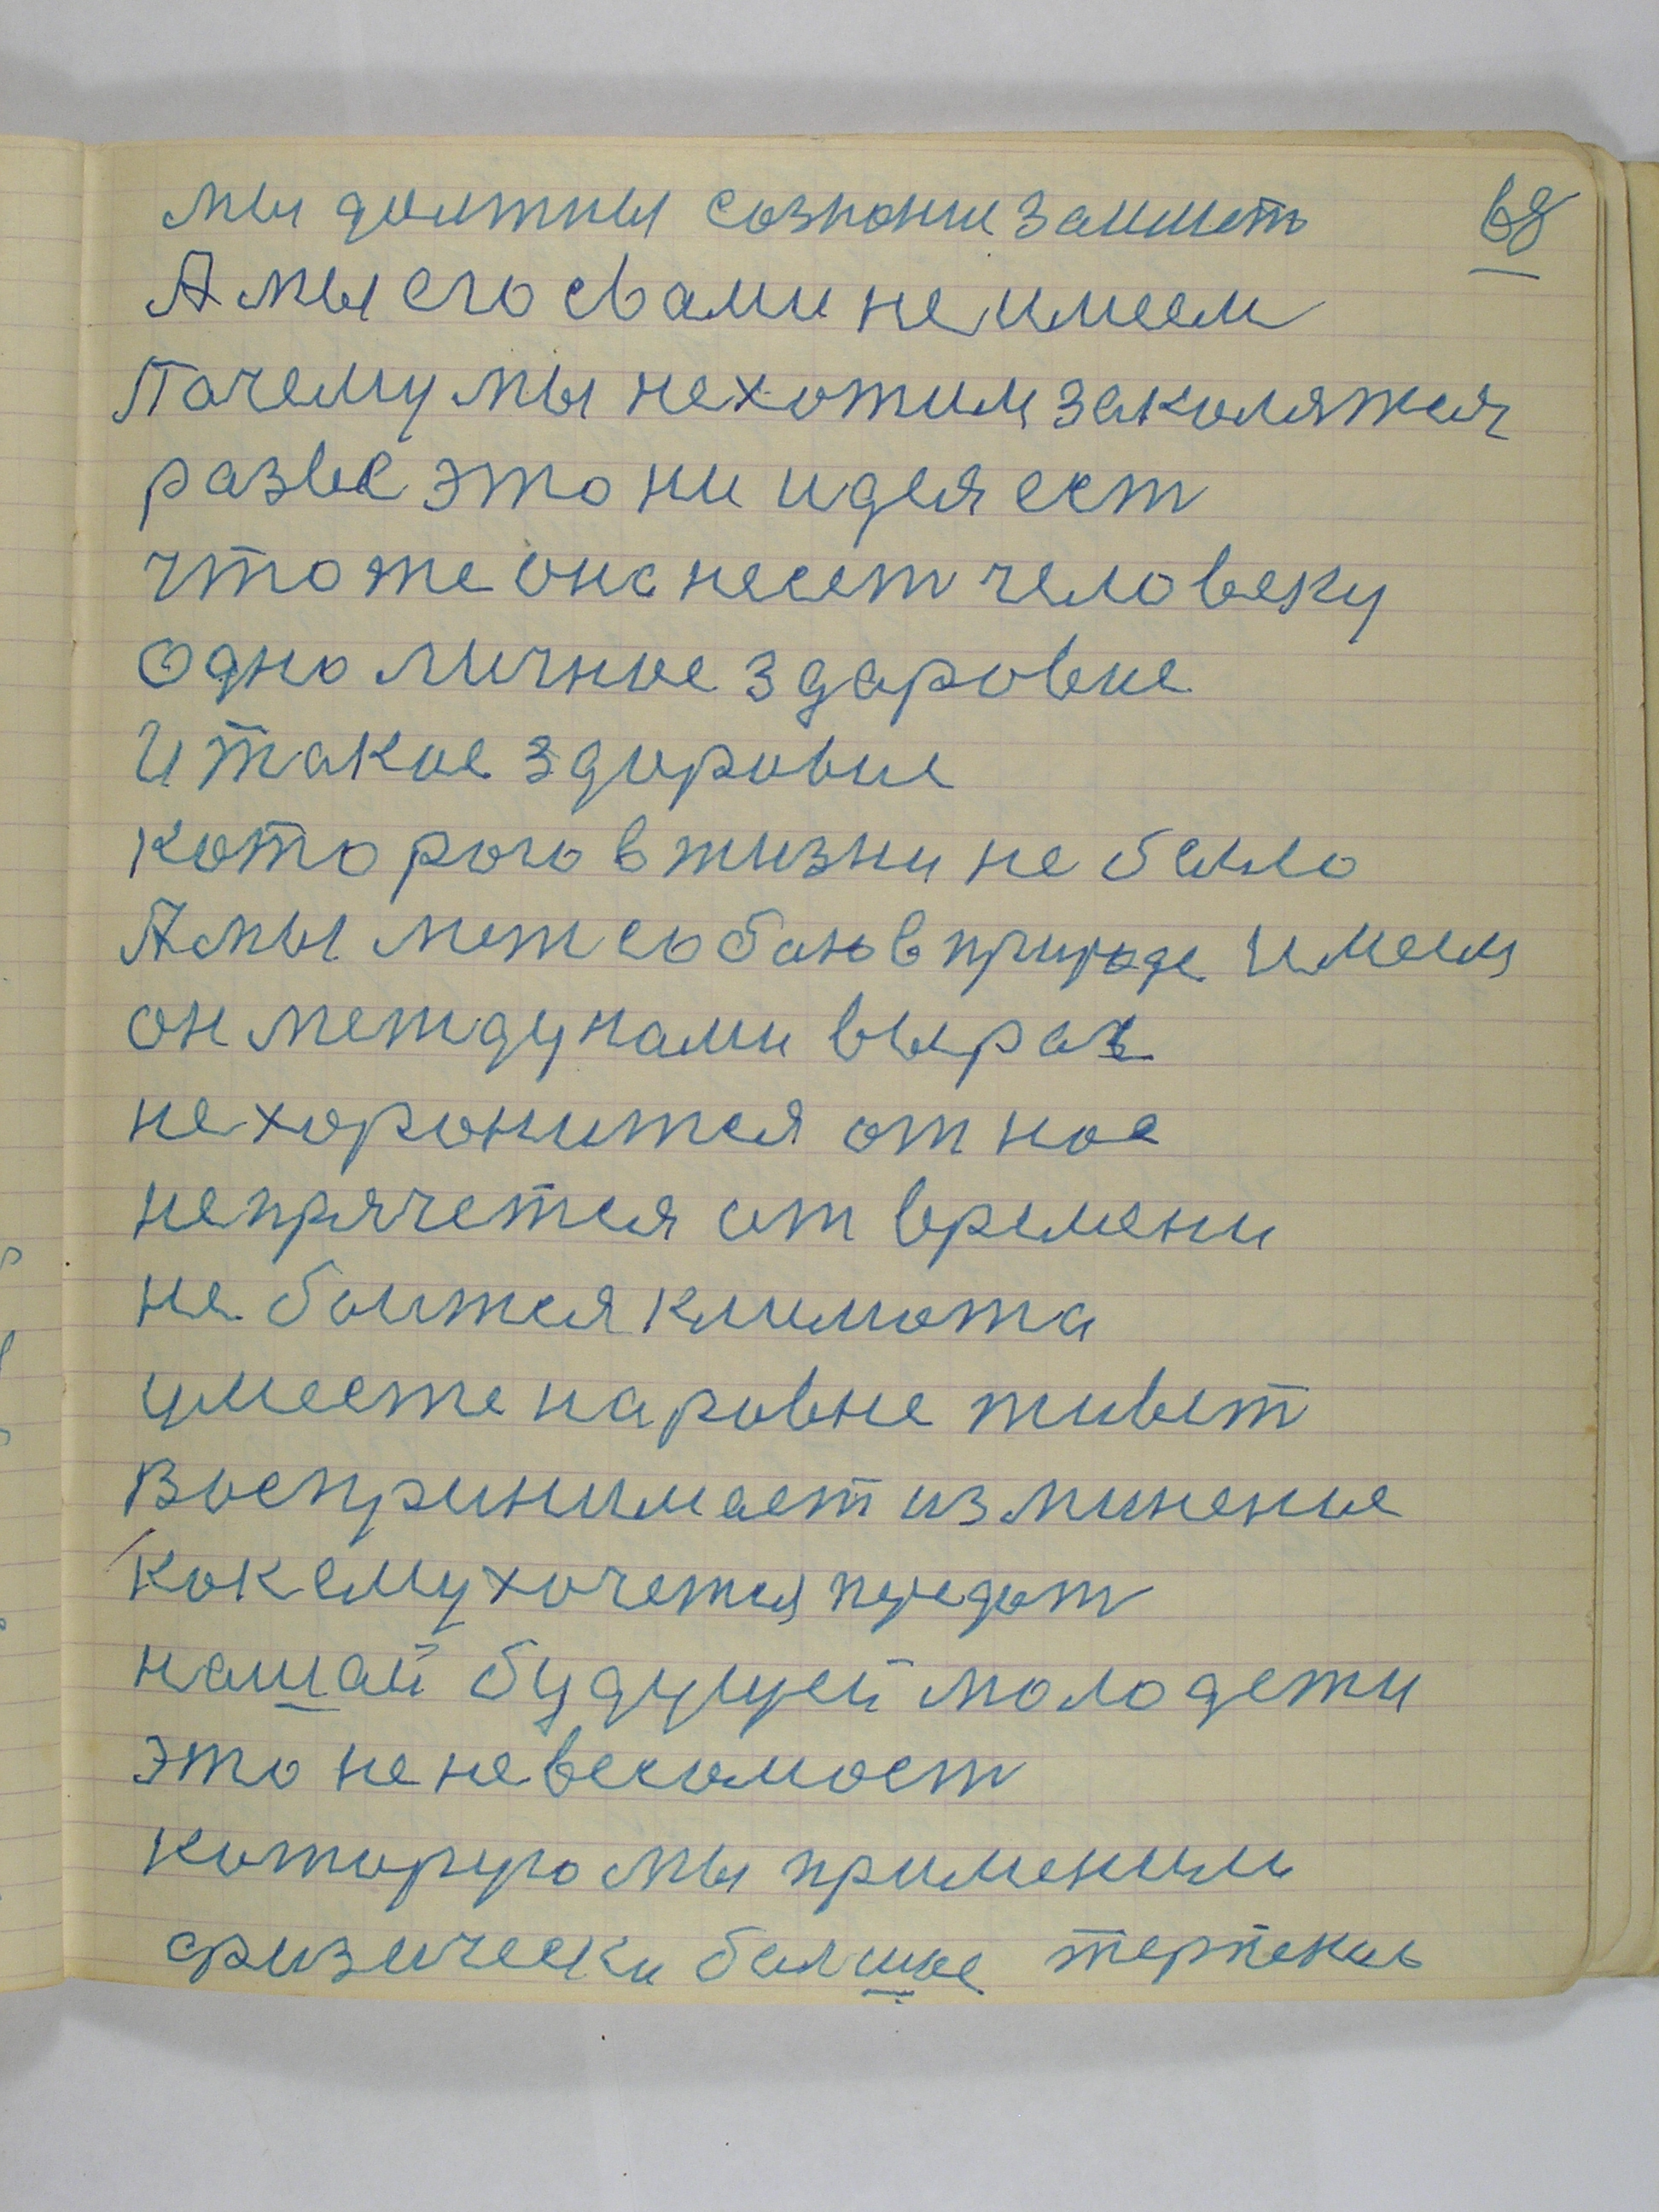 мы должны сознание заиметь 68
А мы его свами не имеем
Почему мы нехотим закалятся
разве это ни идея ест
что же она несет человеку
Одно личное здаровие
И такое здоровие
которого в жизни не было
А мы меж собаю в природе имеем
он между нами вырас
не хоронится от нас
непрячется от времени
не боится климата
умеет же наровне живет
Воспринимает изминение
как ему хочется передат
нашай будущей моло дежи
это не невесомост
которую мы применим
физически болшое